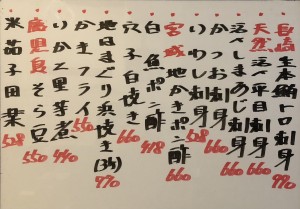 長崎生本鮪トロ刺身 990
天然活〆平目刺身 660
活〆しまあじ刺身 660
かつお刺身 660
いわし刺身 528
宮城地かきポン酢 660
白魚ポン酢 418
穴子白焼き 660
地はまぐり浜焼き(3ヶ) 990
かきフライ 550
いかと里芋煮 440
鹿児島そら豆 550
米茄子田楽 528